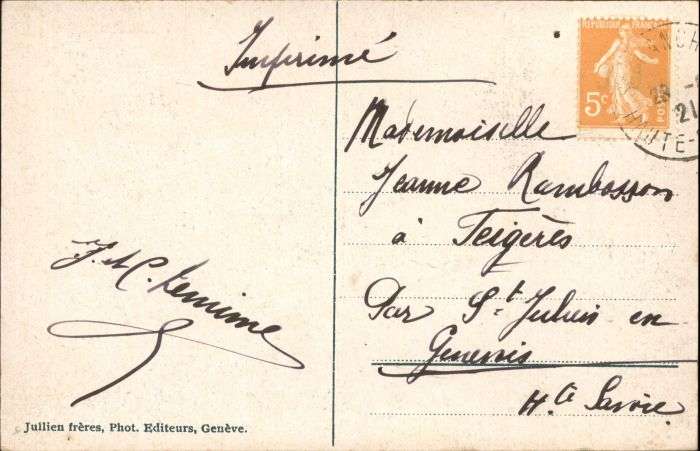 Imprimé
REPUBLIQUE FRANCAISE
5c
POSTES
21
Mademoiselle
Jeanne Rambosson
à Feigères
Par St Julien en
Genevois
Hte Savoie
J. & C.
Jullien frères, Phot. Editeurs, Genève.